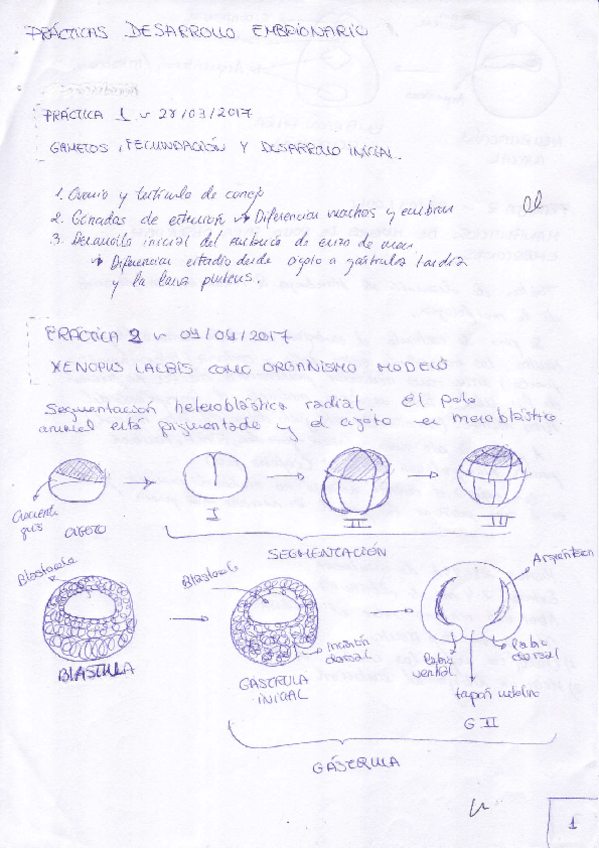 PRÁCTICAS DESARROLLO EMBRIONARIO
PRÁCTICA 1 28/03/2017
GAMETOS, FECUNDACIÓN Y DESARROLLO INICIAL.
1. Ovario y testículo de conejo
2. Gónadas de esturión → Diferenciar machos y hembras
3. Desarrollo inicial del embrión de erizo de mar
→ Diferenciar estadio desde cigoto a gástrula tardía
y la larva pluteus.
PRÁCTICA 2 04/04/2017
XENOPUS LAEVIS COMO ORGANISMO MODELO
Segmentación heteroblástica radial. El polo
animal está pigmentado y el cigoto es meroblástico.
Creciente
gris
CIGOTO
I
II
III
SEGMENTACIÓN
Blastocele
BLÁSTULA
Blastocele
Incisión
dorsal
GÁSTRULA
INICIAL
Arquénteron
Labio
ventral
Labio
dorsal
tapón vitelino
G II
GÁSTRULA
1